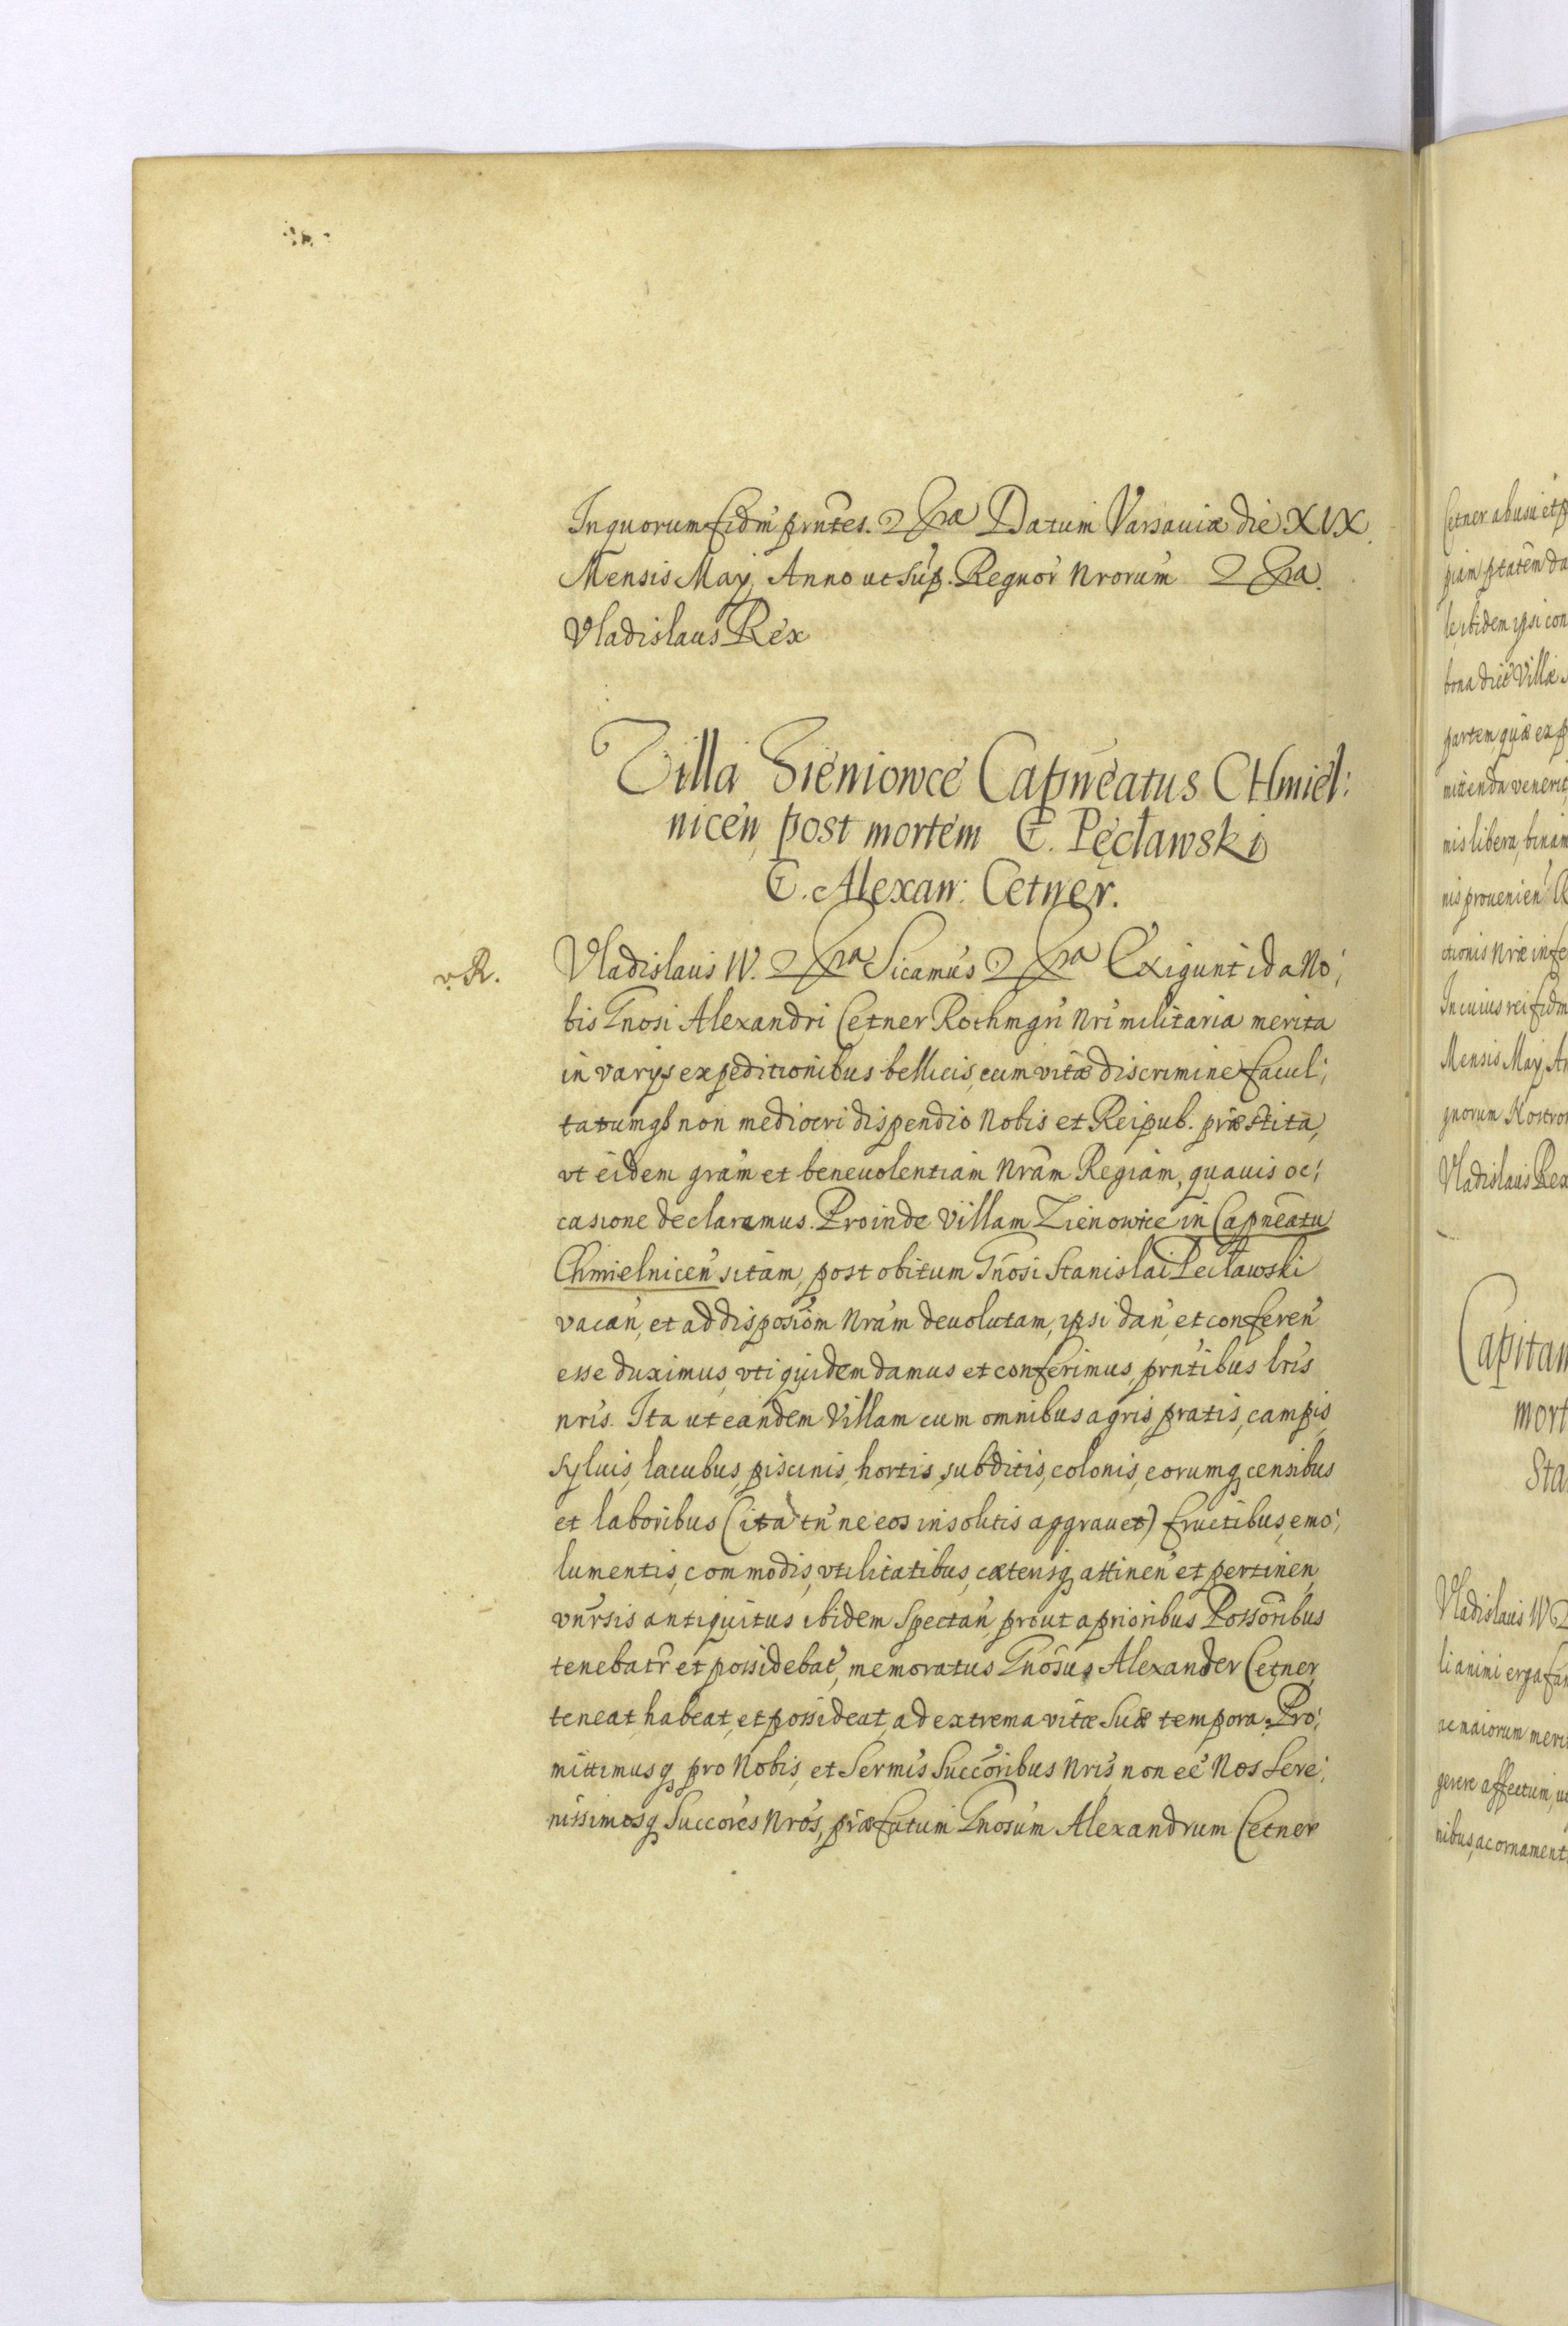 In quorum fidm̃ prñtes. Datum Varsauiæ die XIX.
Mensis Maÿ, Anno ut sup. Regnor̃ Nrorum̃
Vladislaus Rex
Villa Sieniowce Capñeatus CHmiel:
nicen̄, post mortem G. Pęcławski
G. Alexan: Cetner.
v. R.
Vladislaus IV. Sicamus̃ Exigunt id a No:
bis Gnosi Alexandri Cetner Rothmgrĩ Nrĩ militaria merita
in varÿs expeditionibus bellicis, cum vitæ discrimine facul:
tatumq₃ non mediocri dispendio Nobis et Reipub. præstita,
vt eidem gram̃ et beneuolentiam Nram̃ Regiam, quauis oc:
casione declaramus. Proinde Villam Zienowice in Capneatu
Chmielnicen̄ sitam, post obitum Gnosi Stanislai Pecławski
vacan̄, et ad disposiõm Nram̃ deuolutam, ipsi dan̄, et conferen̄
esse duximus, vti quidem damus et conferimus, prñtibus lrĩs
nrĩs. Ita ut eandem Villam cum omnibus agris, pratis, campis,
syluis, lacubus, piscinis, hortis, subditis, colonis, eorumq₃ censibus
et laboribus (ita tñ ne eos insolitis aggrauet) fructibus, emo:
lumentis, commodis, vtilitatibus, cæterisq₃ attinen̄ et pertinen̄
vnr̃sis antiquitus ibidem spectan̄, prout a prioribus Possõribus
tenebatr̃ et possidebat̃, memoratus Gnosus Alexander Cetner,
teneat, habeat, et possideat, ad extrema vitæ suæ tempora. Pro:
mittimusq₃ pro Nobis, et Sermis̃ Succõribus Nrĩs, non eẽ Nos Sere:
nissimosq₃ Succores̃ Nros̃, præfatum Gnosum Alexandrum Cetner
Cetner abusu et p
piam ptatem̃ da
le, ibidem ipsi con
bona dict̃ Villæ
partem, quæ ex p
mittenda venerit
mis libera, binam
nis prouenien̄
ctionis Nræ infe
In cuius rei fidm̃
Mensis Maÿ, An
gnorum Nostror
Vladislaus Rex
Capitan
mort
Sta
Vladislaus IV
li animi erga fa
ac maiorum meri
gerere affectum, ut
nibus, ac ornament